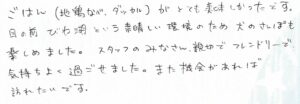 ごはん(地鶏なべ、ダッカル)がとても美味しかったです。
目の前びわ湖という素晴しい環境のため犬のさんぽも
楽しめました。スタッフのみなさん、親切でフレンドリーで
気持ちよく過ごせました。また機会があれば
訪れたいです。